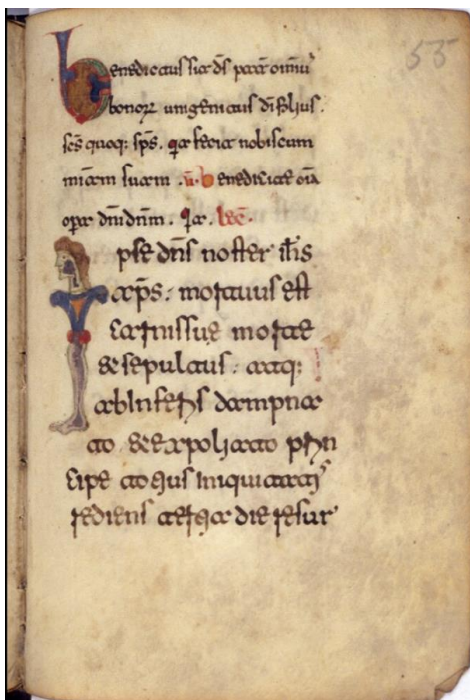 55
Benedictus sit ds pater omniu
bonorꝝ unigenitus di filius.
scs quoq: sps. qia fecit nobiscum
miam suam. v. Benedicite oia
opera dni dnm. Qia. lec.
Ipse dns noster ihs
xps: mortuus est
carnis sue morte
& sepultus: atq:
ab inferis dampna
to & expoliato prin
cipe totius iniquitatis
rediens tertia die resur